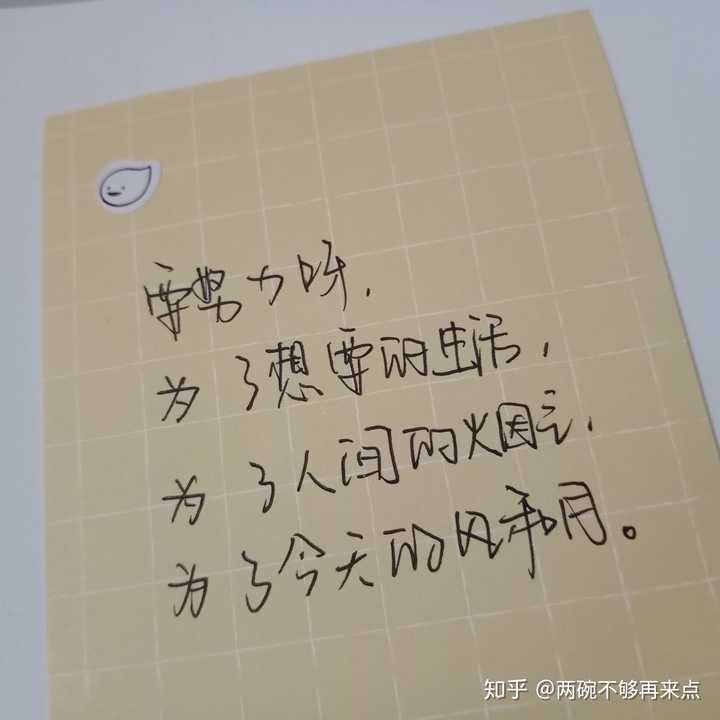 要努力呀，
为了想要的生活，
为了人间的烟云，
为了今天的风和月。
知乎 @两碗不够再来点